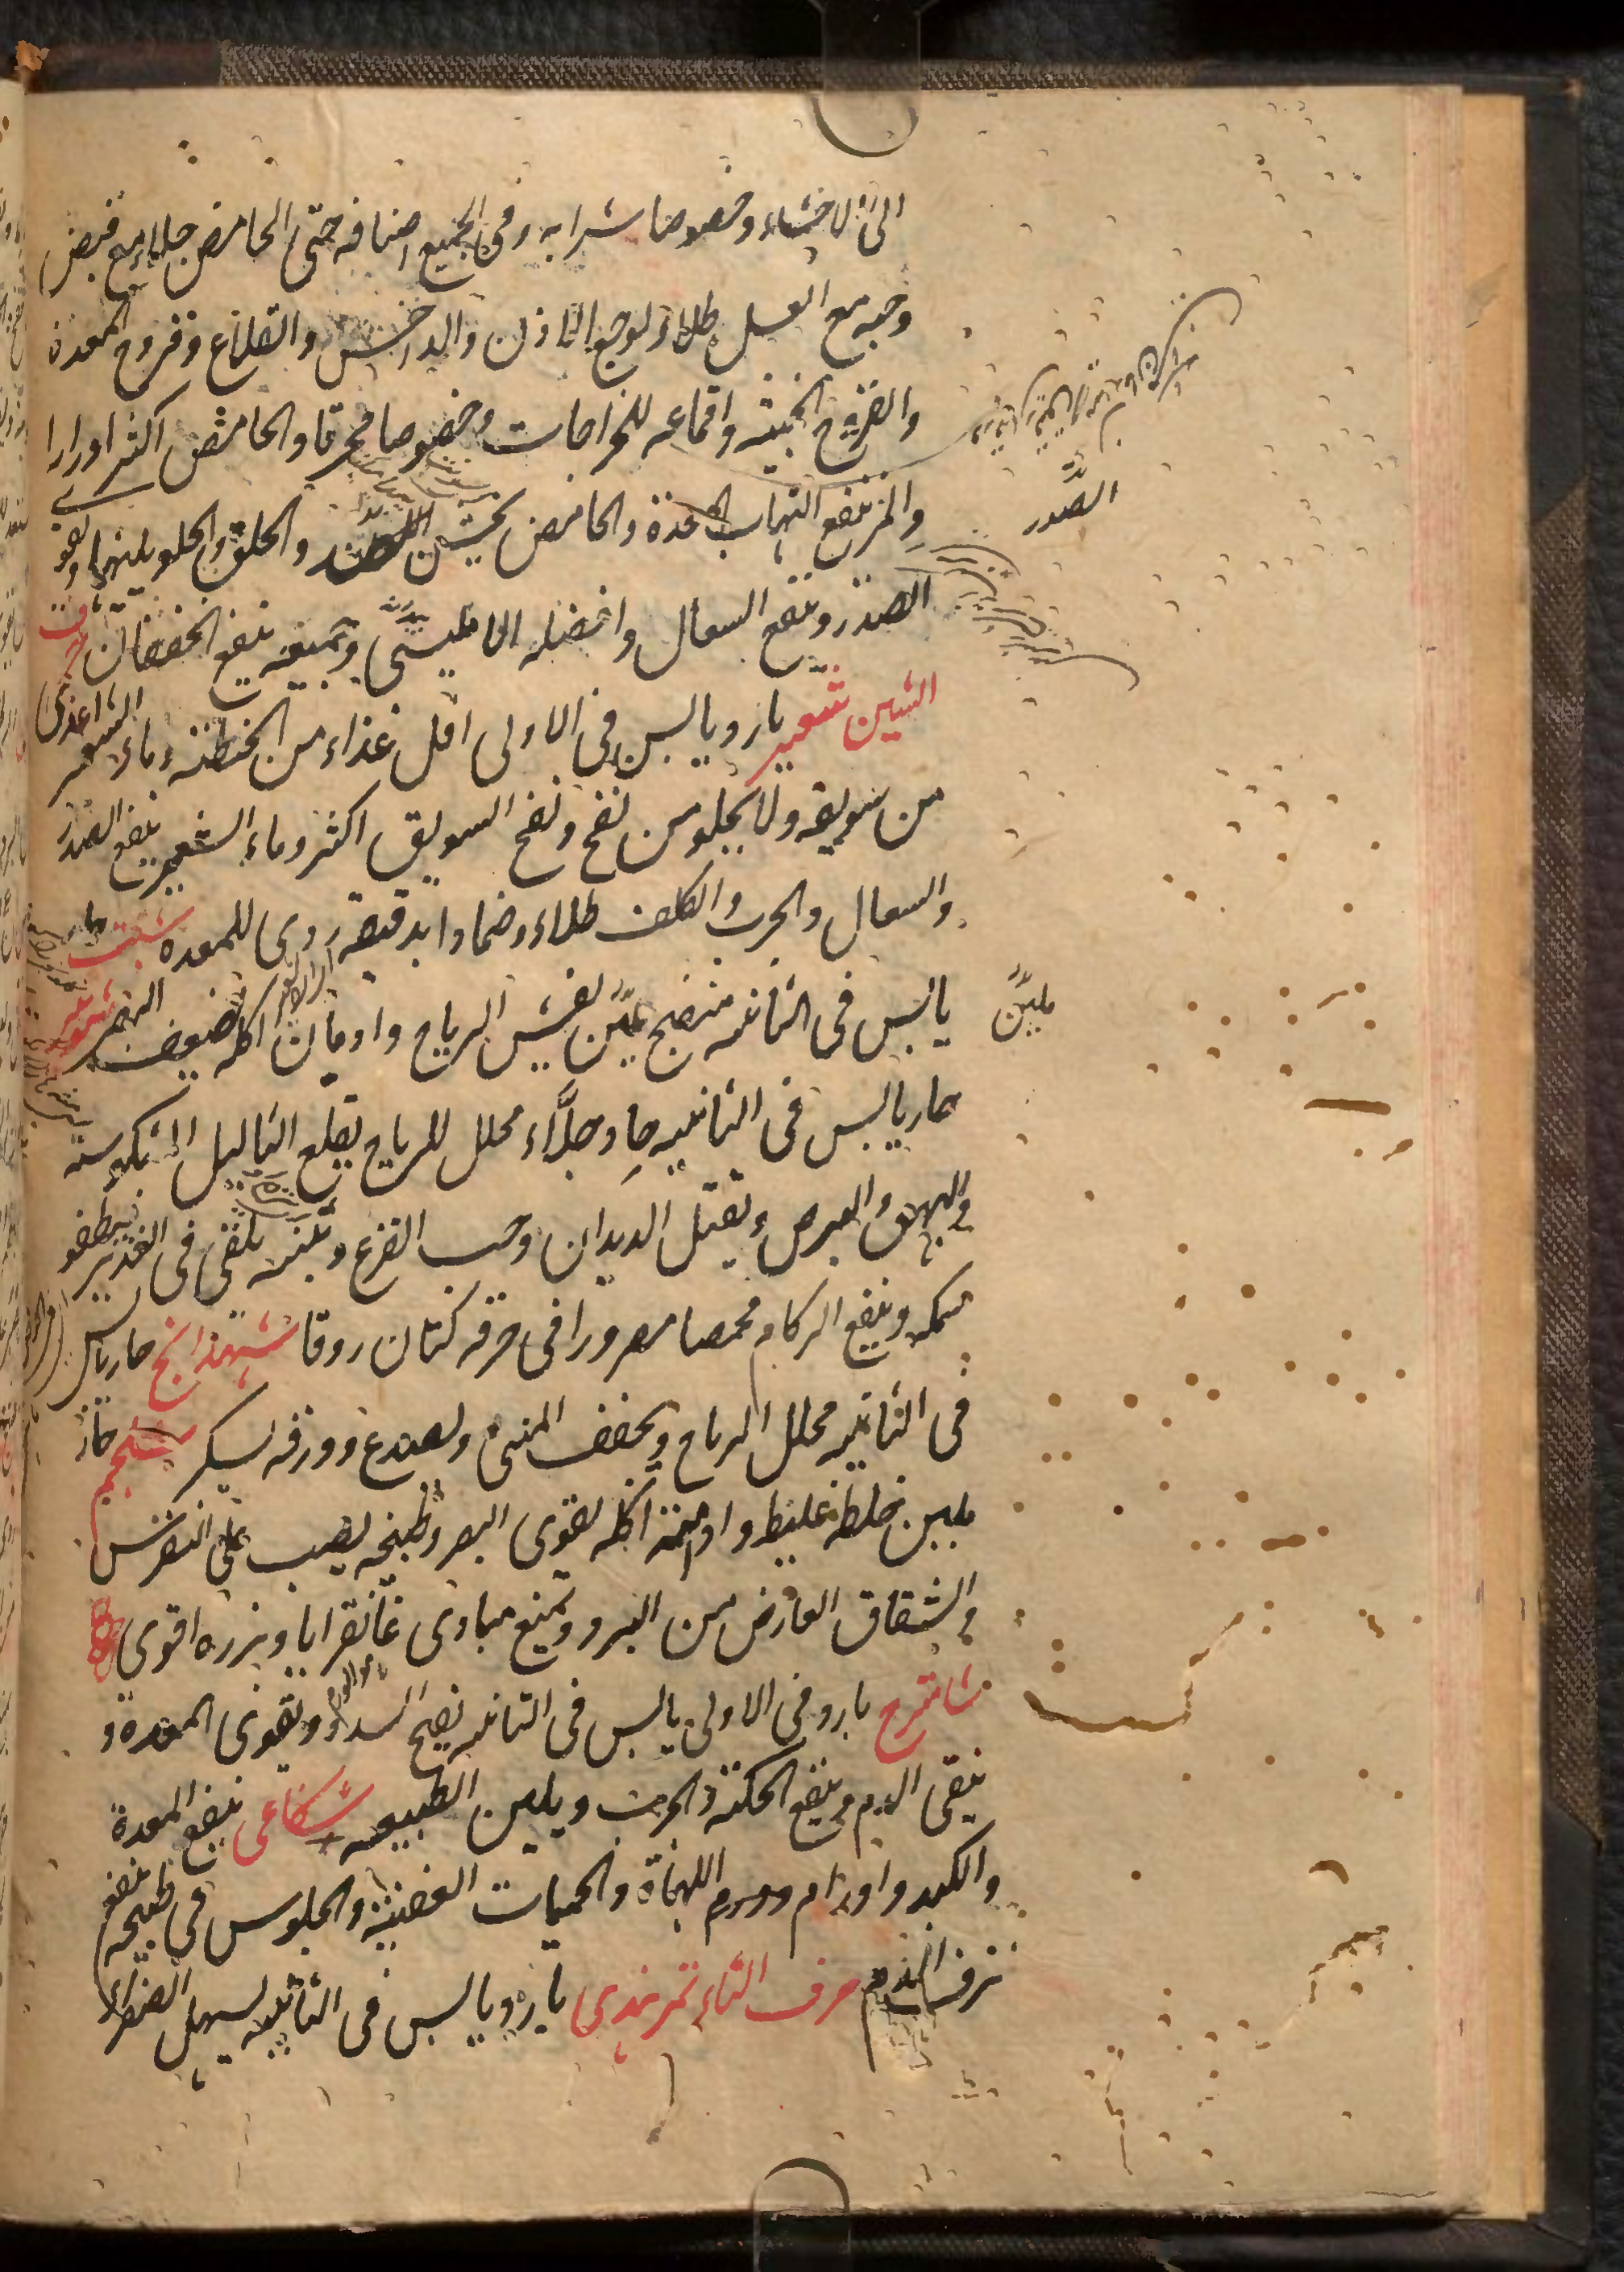 الى الاحشاء وخصوصا شرابه وفى الجميع اصنافه حتى الحامض جلاء مع قبض
وحبه مع العسل طلاء لوجع الاذن والداخس والقلاع وقروح المعدة
والقروح الخبيثه واقماعه للخراجات وخصوصا محرقا والحامض اكثر ادرارا
والمز ينفع التهاب المعدة والحامض يخشن والحلق والحلو يلينهما ويقوى
الصدر
الصدر وينفع السعال وافضله الامليسى وجميعه ينفع الخفقان حرف
الشين شعير بارد يابس فى الاولى اقل غذاء من الحنطة وماء الشعير اغذى
من سويقه ولا يخلو من نفخ ونفخ السويق اكثر وماء الشعير ينفع الصدر
والسعال والجرب والكلف طلاء وضمادا بدقيقه ردى للمعده شبت حار
يابس فى الثانيه منضج ملين يفش الرياح وادمان اكله يضعف البصر شونيز
ملين
حار يابس فى الثانيه حاد جلاء محلل للرياح يقلع الثاليل المنكوسه
والبهق والبرص ويقتل الديدان وحب القرع يلقى فى الغدير يطفو
سمكه وينفع الزكام محمصا مصرورا فى خرقه كتان زرقا شهدانج حار يابس
فى الثانيه محلل الرياح ويجفف المنى ويصدع وورقه يسكر شلجم حار
ملين خلطه غليظ وادمنة اكله يقوى البصر وطبيخه يصب على النقرس
والشقاق العارض من البرد ويمنع مبادى غانغرايا وبزره اقوى
شاهترج بارد فى الاولى يابس فى الثانيه يفتح السدد ويقوى المعدة و
ينقى الدم وينفع الحكة والجرب ويلين الطبيعه شكاعى ينفع المعدة
والكبد واورام اللهاة والحميات العفنيه والجلوس فى طبيخه ينفع
نزف الدم حرف التاء تمر هندى بارد يابس فى الثانيه يسهل الصفراء